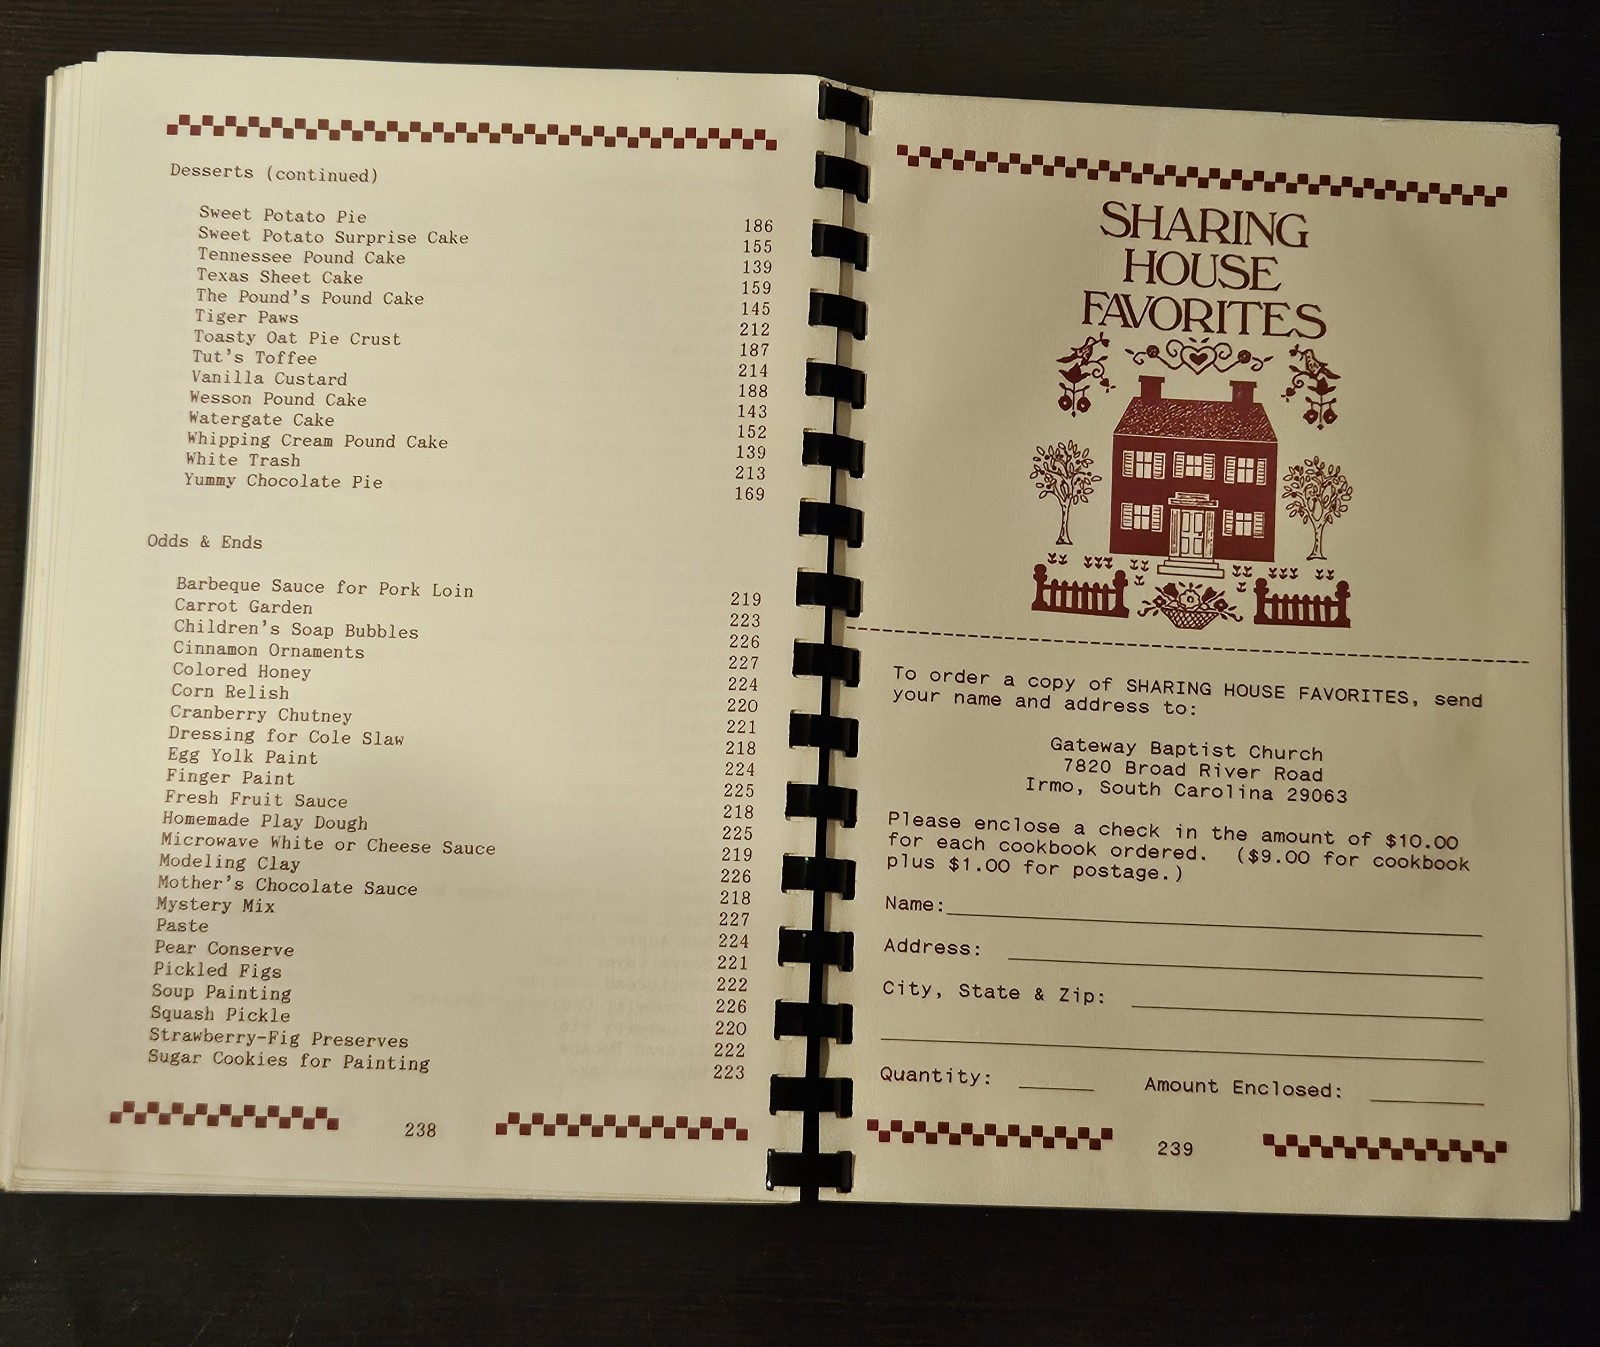 Desserts (continued)
Sweet Potato Pie 186
Sweet Potato Surprise Cake 155
Tennessee Pound Cake 139
Texas Sheet Cake 159
The Pound's Pound Cake 145
Tiger Paws 212
Toasty Oat Pie Crust 187
Tut's Toffee 214
Vanilla Custard 188
Wesson Pound Cake 143
Watergate Cake 152
Whipping Cream Pound Cake 139
White Trash 213
Yummy Chocolate Pie 169
Odds & Ends
Barbeque Sauce for Pork Loin 219
Carrot Garden 223
Children's Soap Bubbles 226
Cinnamon Ornaments 227
Colored Honey 224
Corn Relish 220
Cranberry Chutney 221
Dressing for Cole Slaw 218
Egg Yolk Paint 224
Finger Paint 225
Fresh Fruit Sauce 218
Homemade Play Dough 225
Microwave White or Cheese Sauce 219
Modeling Clay 226
Mother's Chocolate Sauce 218
Mystery Mix 227
Paste 224
Pear Conserve 221
Pickled Figs 222
Soup Painting 226
Squash Pickle 220
Strawberry-Fig Preserves 222
Sugar Cookies for Painting 223
238
SHARING
HOUSE
FAVORITES
To order a copy of SHARING HOUSE FAVORITES, send
your name and address to:
Gateway Baptist Church
7820 Broad River Road
Irmo, South Carolina 29063
Please enclose a check in the amount of $10.00
for each cookbook ordered. ($9.00 for cookbook
plus $1.00 for postage.)
Name:
Address:
City, State & Zip:
Quantity: Amount Enclosed:
239